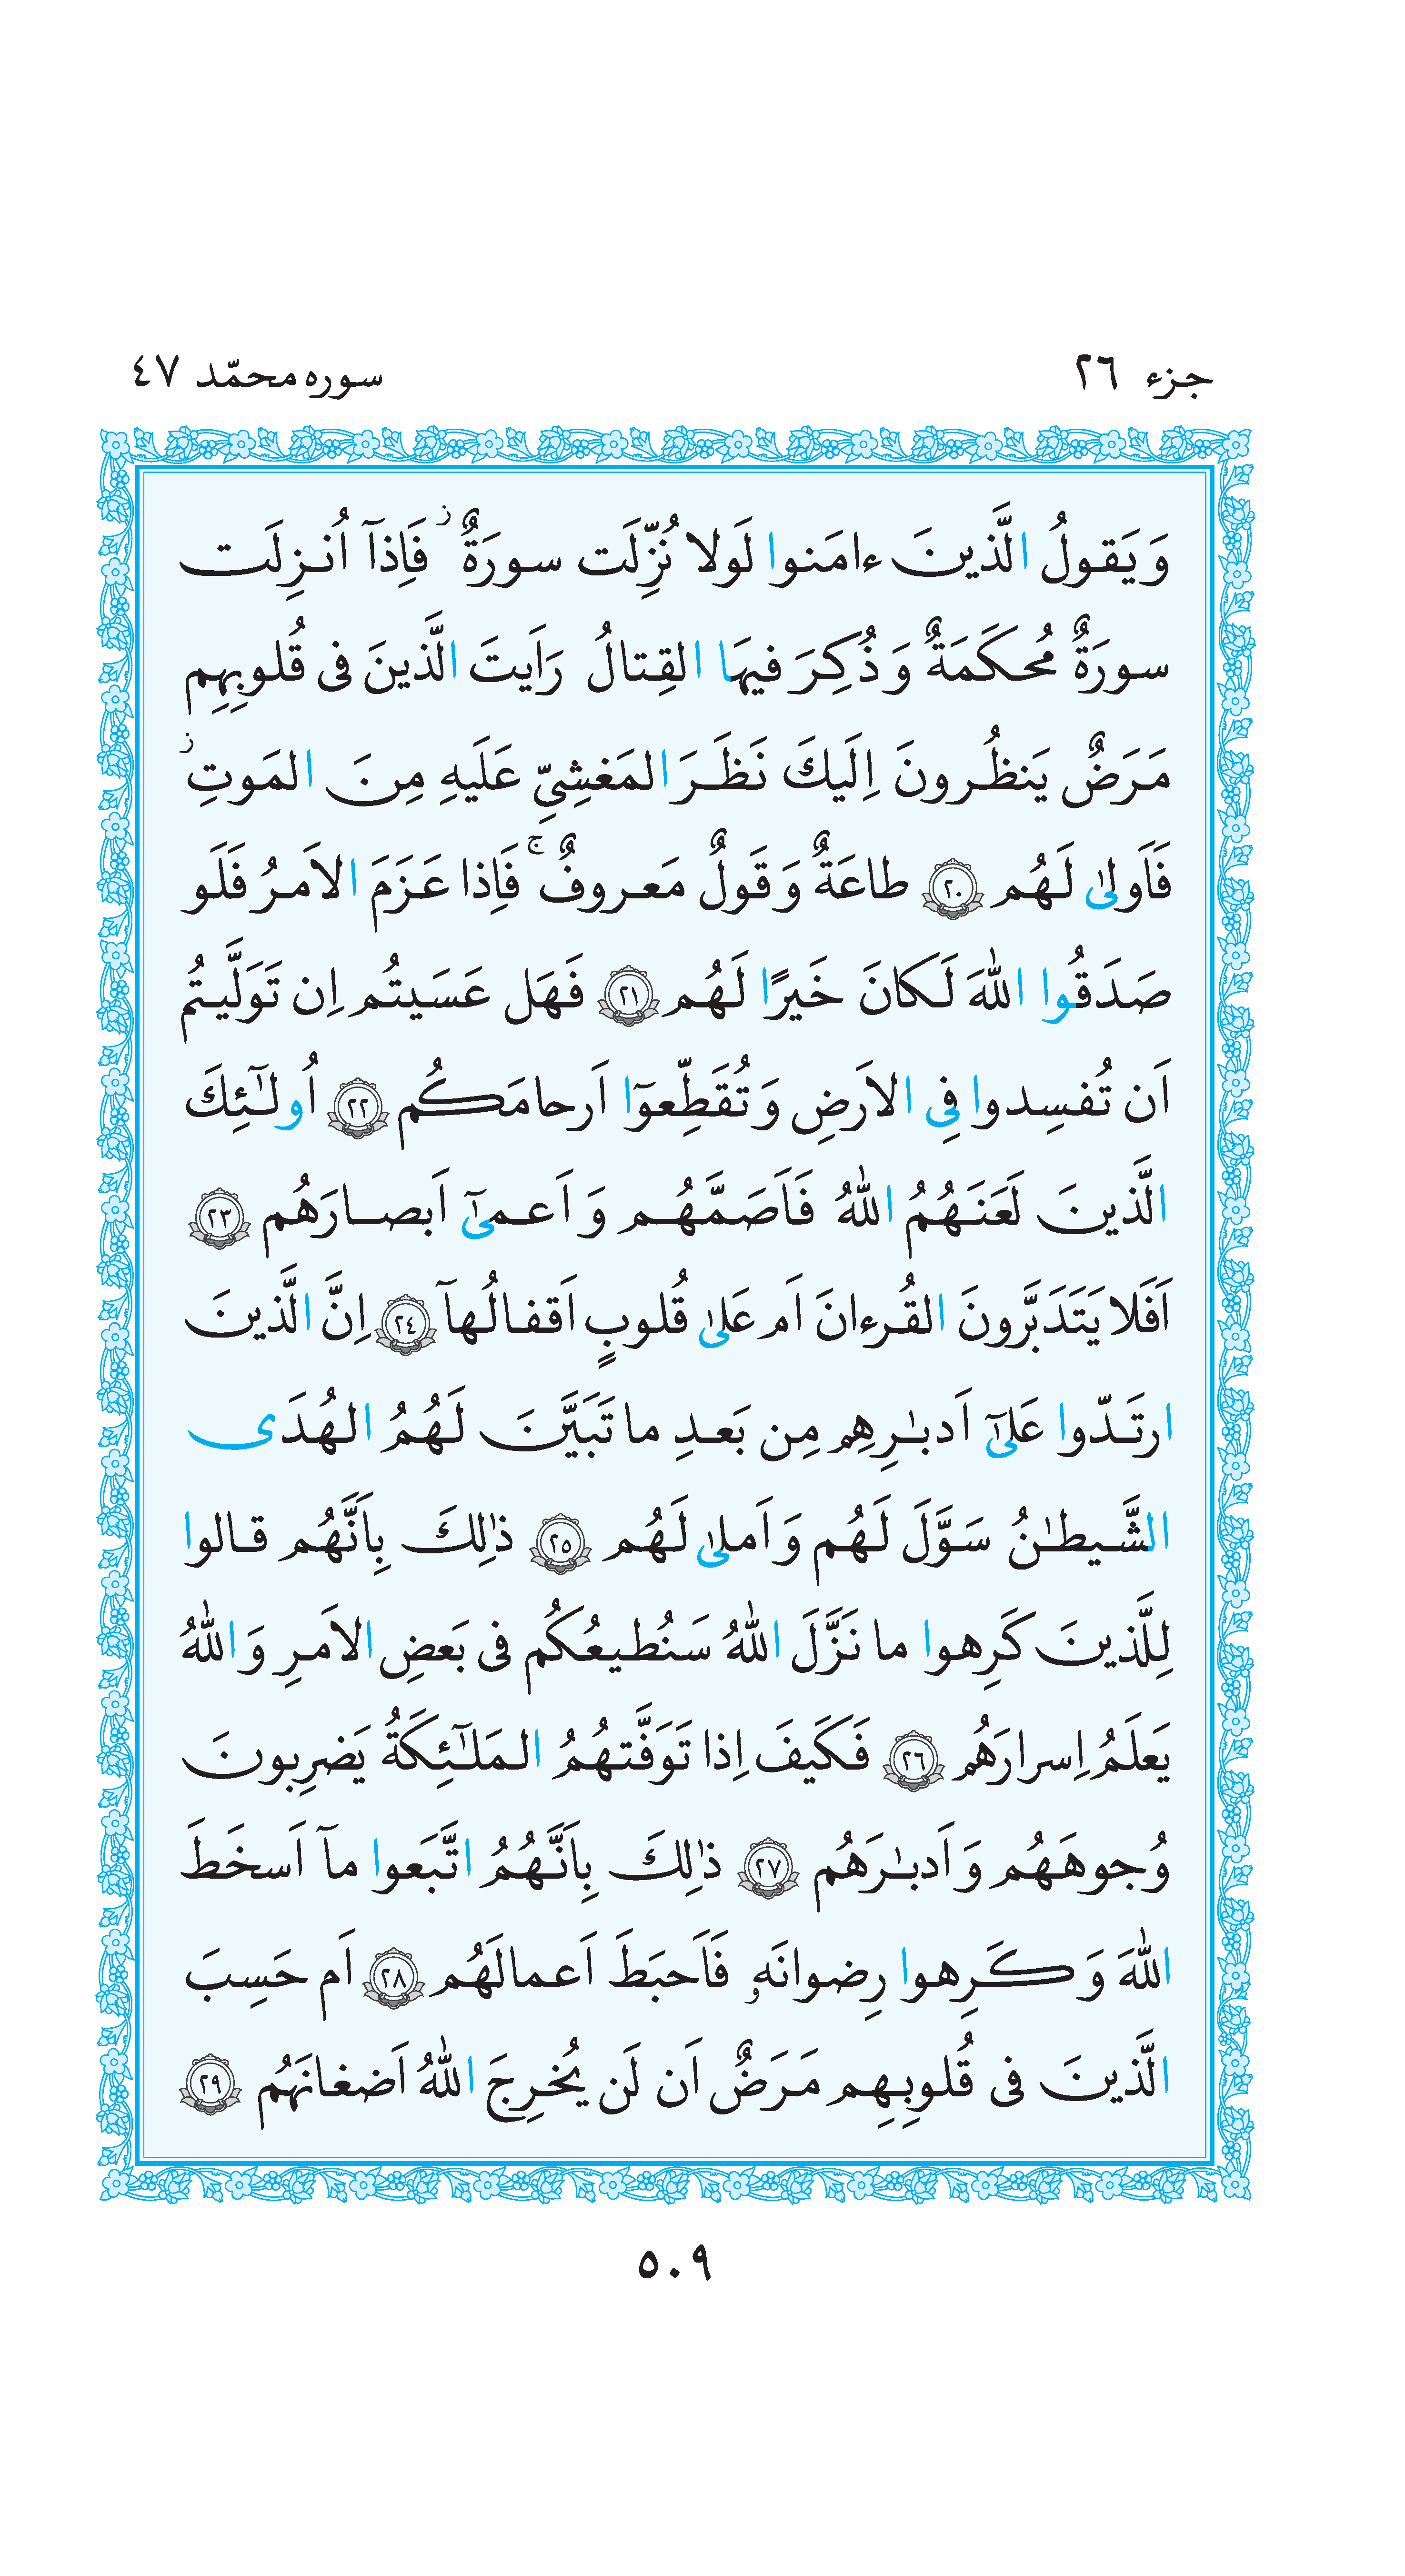 جزء ٢٦
سوره محمّد ٤٧
وَ يَقولُ الَّذينَ ءامَنوا لَولا نُزِّلَت سورَةٌ ۖ فَاِذآ اُنزِلَت
سورَةٌ مُحكَمَةٌ وَ ذُكِرَ فيهَا القِتالُ رَاَيتَ الَّذينَ فى قُلوبِهِم
مَرَضٌ يَنظُرونَ اِلَيكَ نَظَرَ المَغشِىِّ عَلَيهِ مِنَ المَوتِ ۖ
فَاَولىٰ لَهُم ٢٠ طاعَةٌ وَ قَولٌ مَعروفٌ ۚ فَاِذا عَزَمَ الاَمرُ فَلَو
صَدَقُوا اللّٰهَ لَكانَ خَيرًا لَهُم ٢١ فَهَل عَسَيتُم اِن تَوَلَّيتُم
اَن تُفسِدوا فِى الاَرضِ وَ تُقَطِّعوٓا اَرحامَكُم ٢٢ اُولٰٓئِكَ
الَّذينَ لَعَنَهُمُ اللّٰهُ فَاَصَمَّهُم وَ اَعمىٰٓ اَبصارَهُم ٢٣
اَفَلا يَتَدَبَّرونَ القُرءانَ اَم عَلىٰ قُلوبٍ اَقفالُهآ ٢٤ اِنَّ الَّذينَ
ارتَدّوا عَلىٰٓ اَدبٰرِهِم مِن بَعدِ ما تَبَيَّنَ لَهُمُ الهُدَى
الشَّيطٰنُ سَوَّلَ لَهُم وَ اَملىٰ لَهُم ٢٥ ذٰلِكَ بِاَنَّهُم قالوا
لِلَّذينَ كَرِهوا ما نَزَّلَ اللّٰهُ سَنُطيعُكُم فى بَعضِ الاَمرِ وَ اللّٰهُ
يَعلَمُ اِسرارَهُم ٢٦ فَكَيفَ اِذا تَوَفَّتهُمُ المَلٰٓئِكَةُ يَضرِبونَ
وُجوهَهُم وَ اَدبٰرَهُم ٢٧ ذٰلِكَ بِاَنَّهُمُ اتَّبَعوا مآ اَسخَطَ
اللّٰهَ وَ كَرِهوا رِضوانَهٗ فَاَحبَطَ اَعمالَهُم ٢٨ اَم حَسِبَ
الَّذينَ فى قُلوبِهِم مَرَضٌ اَن لَن يُخرِجَ اللّٰهُ اَضغانَهُم ٢٩
٥٠٩